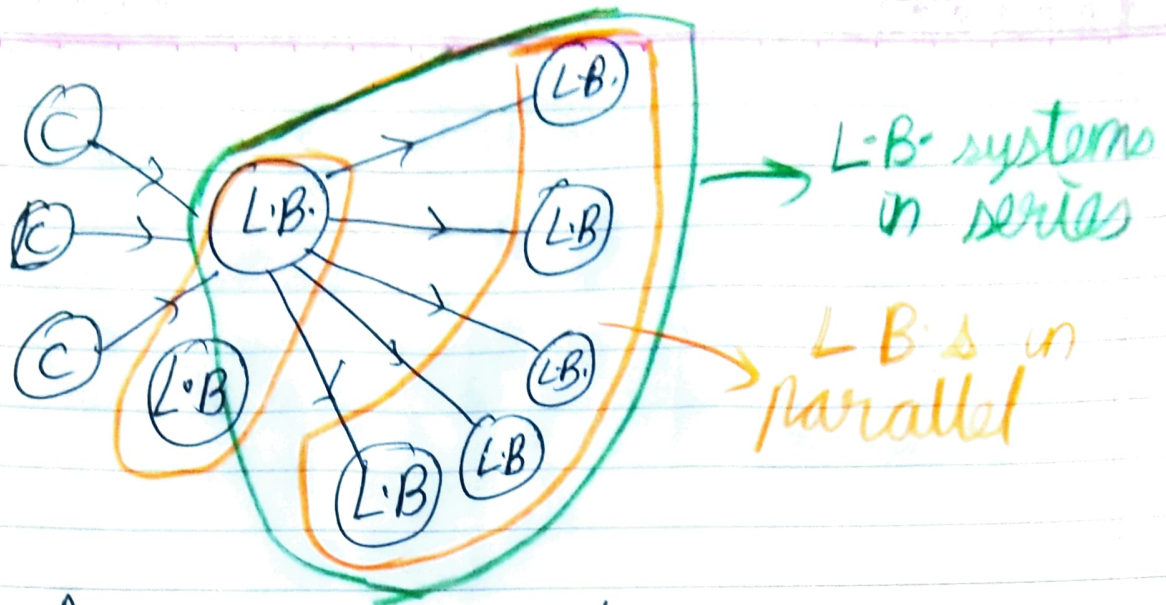 C
C
C
L.B.
L.B
L.B.
L.B
L.B.
L.B
L.B
L.B. systems
in series
L B.s in
parallel